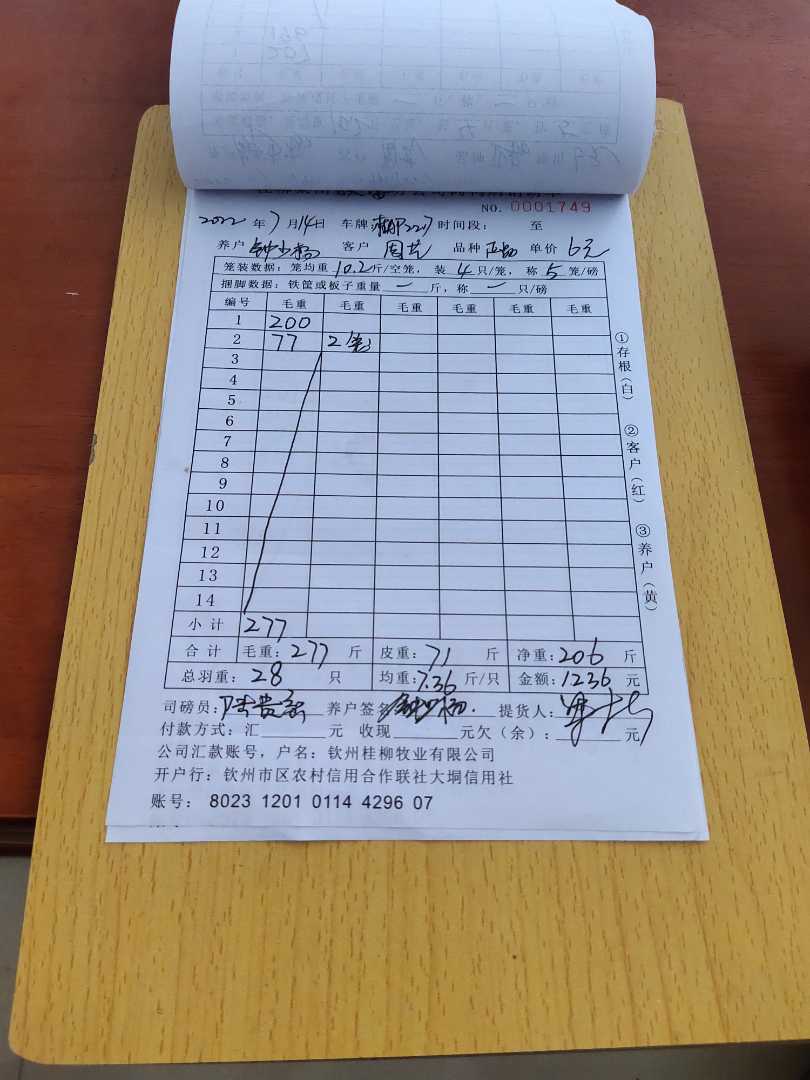 NO. 0001749
2022年7月14日 车牌 时间段: 至
养户 钟少杨 客户 周艺 品种 正 单价 6元
笼装数据: 笼均重 10.2 斤/空笼, 装 4 只/笼, 称 5 笼/磅
捆脚数据: 铁筐或板子重量 — 斤, 称 — 只/磅
编号 毛重 毛重 毛重 毛重 毛重 毛重
1 200
2 77 2笼
3
4
5
6
7
8
9
10
11
12
13
14
小计 277
合计 毛重: 277 斤 皮重: 71 斤 净重: 206 斤
总羽重: 28 只 均重: 7.36 斤/只 金额: 1236 元
司磅员: 养户签名 钟少杨 提货人:
付款方式: 汇 元 收现 元欠(余): 元
公司汇款账号, 户名: 钦州桂柳牧业有限公司
开户行: 钦州市区农村信用合作联社大垌信用社
账号: 8023 1201 0114 4296 07
①存根(白)
②客户(红)
③养户(黄)